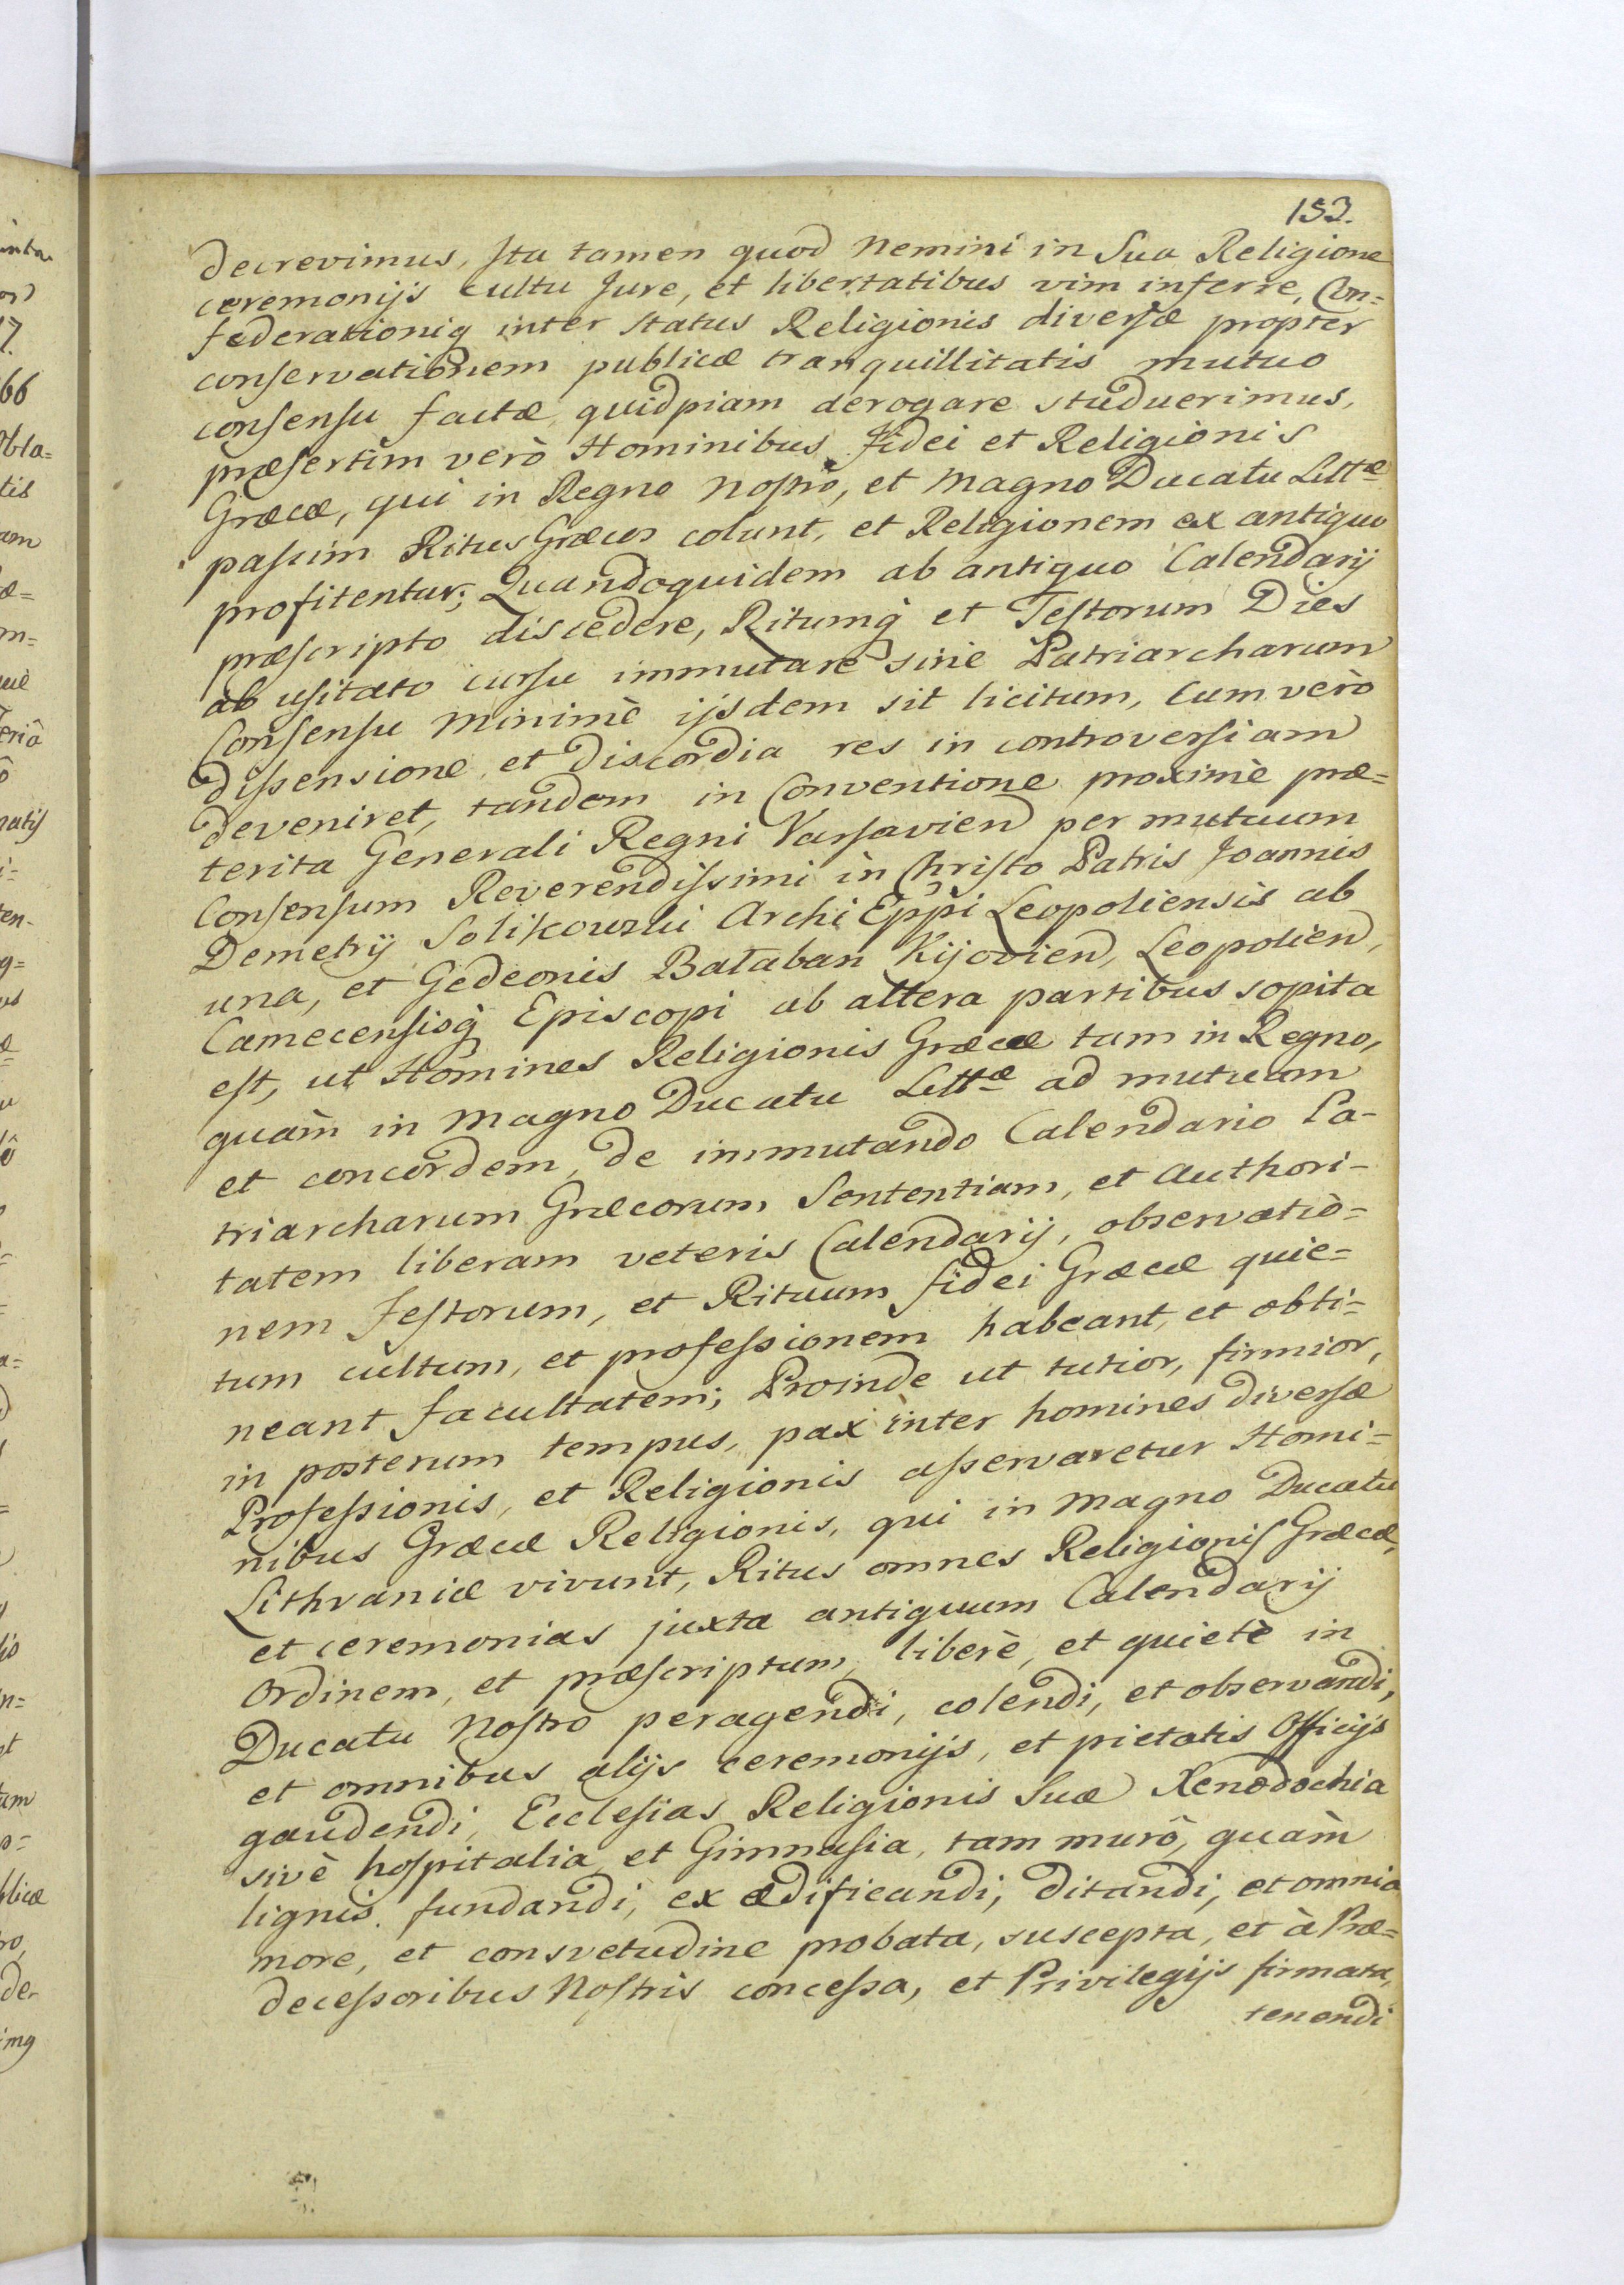 153.
decrevimus, Ita tamen quod Nemini in Sua Religione
ceremonijs cultu Jure, et libertatibus vim inferre, Con=
federationiq inter status Religionis diversæ propter
conservationem publicæ tranquillitatis mutuo
consensu factæ, quidpiam derogare studuerimus,
præsertim verò Hominibus Fidei et Religionis
Græcæ, qui in Regno Nostro, et Magno Ducatu Littæ
passim Ritus Græcos colunt, et Religionem ex antiquo
profitentur; Quandoquidem ab antiquo Calendarij
præscripto discedere, Ritumq et Festorum Dies
ab usitato cursu immutare sine Patriarcharum
Consensu minimè ijsdem sit licitum, Cum verò
dissensione et discordia res in controversiam
deveniret, tandem in Conventione proximè præ=
terita Generali Regni Varsavien per mutuum
Consensum Reverendissimi in Christo Patris Joannis
Demetrij Solikowski Archi Eppi Leopoliensis ab
una, et Gedeonis Bałaban Kijovien, Leopolien,
Camecensisq Episcopi ab altera partibus sopita
est, ut Homines Religionis Græcæ tam in Regno,
quàm in Magno Ducatu Littæ ad mutuam
et concordem, de immutando Calendario Pa-
triarcharum Græcorum Sententiam, et Authori-
tatem liberam veteris Calendarij, observatio=
nem Festorum, et Rituum fidei Græcæ quie=
tum cultum, et professionem habeant, et obti=
neant facultatem; Proinde ut tutior, firmior,
in posterum tempus, pax inter homines diversæ
Professionis, et Religionis asservaretur Homi=
nibus Græcæ Religionis, qui in Magno Ducatu
Lithvaniæ vivunt, Ritus omnes Religionis Græcæ,
et ceremonias juxta antiquum Calendarij
Ordinem, et præscriptum, liberè, et quietè in
Ducatu Nostro peragendi, colendi, et observandi,
et omnibus alijs ceremonijs, et pietatis Officijs
gaudendi, Ecclesias Religionis Suæ Xenodochia
sivè hospitalia et Gimnasia, tam murô, quàm
lignis fundandi, ex ædificandi, ditandi, et omnia
more, et consvetudine probata, suscepta, et à Præ=
decessoribus Nostris concessa, et Privilegijs firmata,
tenendi